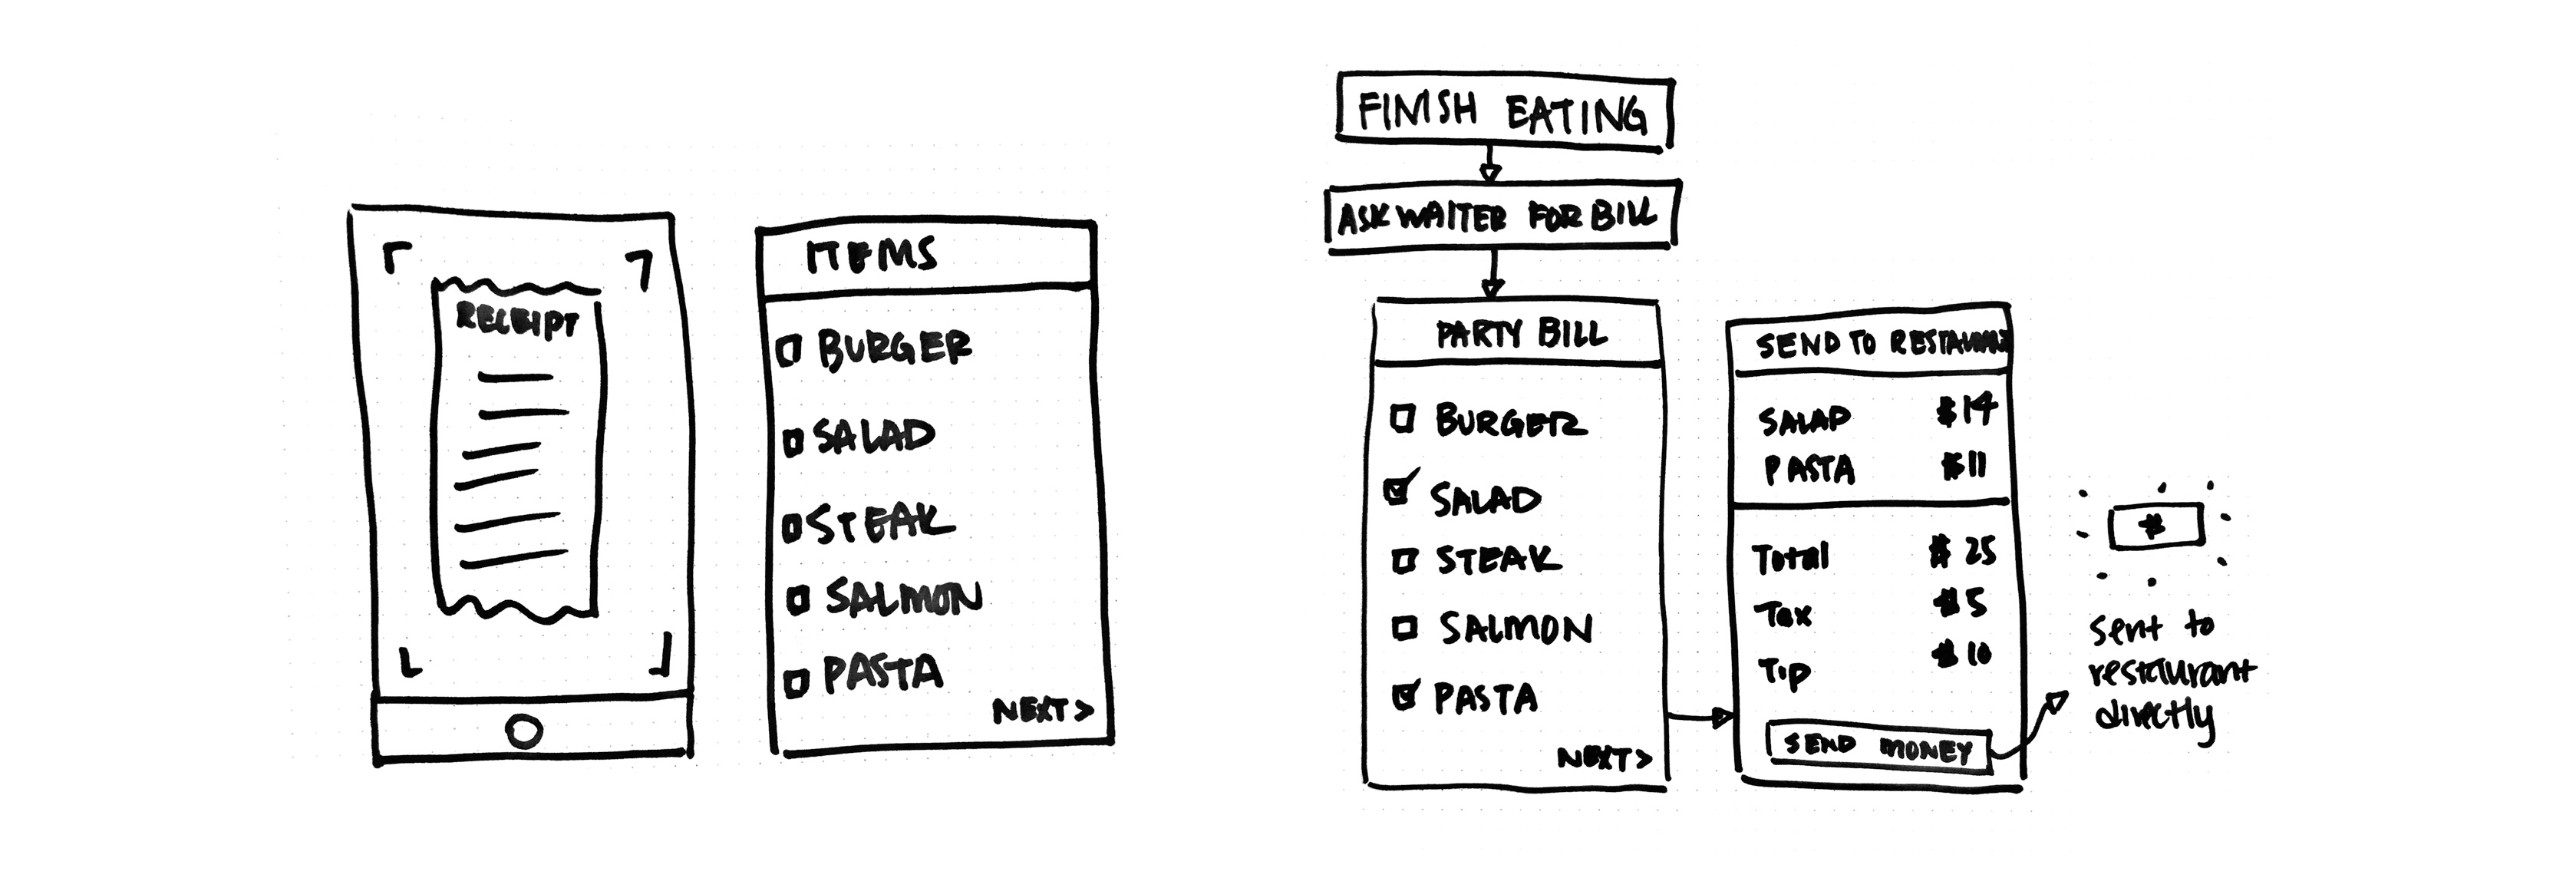 RECEIPT
ITEMS
BURGER
SALAD
STEAK
SALMON
PASTA
NEXT >
FINISH EATING
ASK WAITER FOR BILL
PARTY BILL
BURGER
SALAD
STEAK
SALMON
PASTA
NEXT >
SEND TO RESTAURANT
SALAD $14
PASTA $11
Total $25
Tax $5
Tip $10
SEND MONEY
$
sent to
restaurant
directly